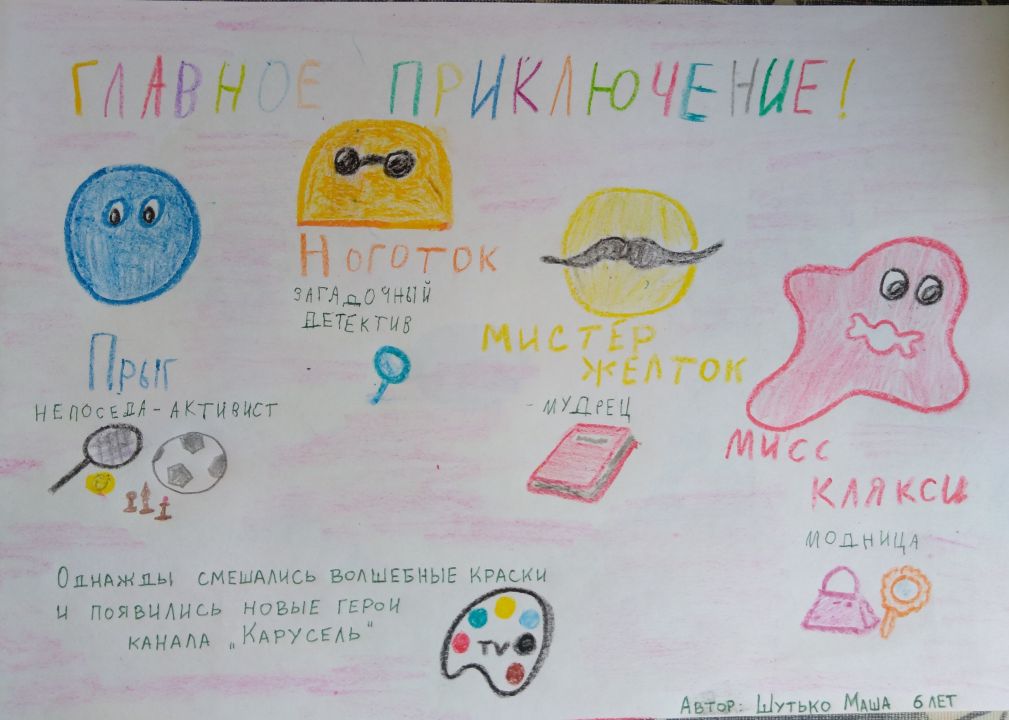 ГЛАВНОЕ ПРИКЛЮЧЕНИЕ!
Прыг
НЕПОСЕДА-АКТИВИСТ
НОГОТОК
ЗАГАДОЧНЫЙ
ДЕТЕКТИВ
МИСТЕР
ЖЕЛТОК
-МУДРЕЦ
МИСС
КЛЯКСИ
МОДНИЦА
ОДНАЖДЫ СМЕШАЛИСЬ ВОЛШЕБНЫЕ КРАСКИ
И ПОЯВИЛИСЬ НОВЫЕ ГЕРОИ
КАНАЛА „КАРУСЕЛЬ"
TV
АВТОР: ШУТЬКО МАША 6 ЛЕТ